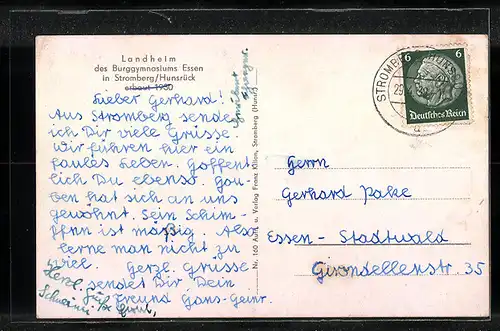 Landheim
des Burggymnasiums Essen
in Stromberg/Hunsrück
erbaut 1930
Lieber Gerhard!
Aus Stromberg sende
ich Dir viele Grüsse.
Wir führen hier ein
faules Leben. Hoffent
lich Du ebenso. Gou-
ben hat sich an uns
gewöhnt. Sein Schim-
pfen ist mäßig. Also
lerne man nicht zu
viel. Herzl. Grüsse
sendet Dir Dein
Freund Hans-Heinr.
Herzl. Grüße
Nr. 160 Aufn. u. Verlag Franz Stromberg (Hunsr.)
STROMBERG
29
6 6
Deutsches Reich
Herrn
Gerhard Pake
Essen - Stadtwald
Girondellenstr. 35